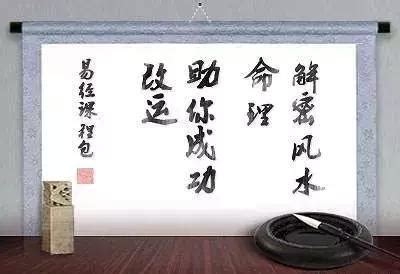 解密风水
命理
助你成功
改运
易经课程包